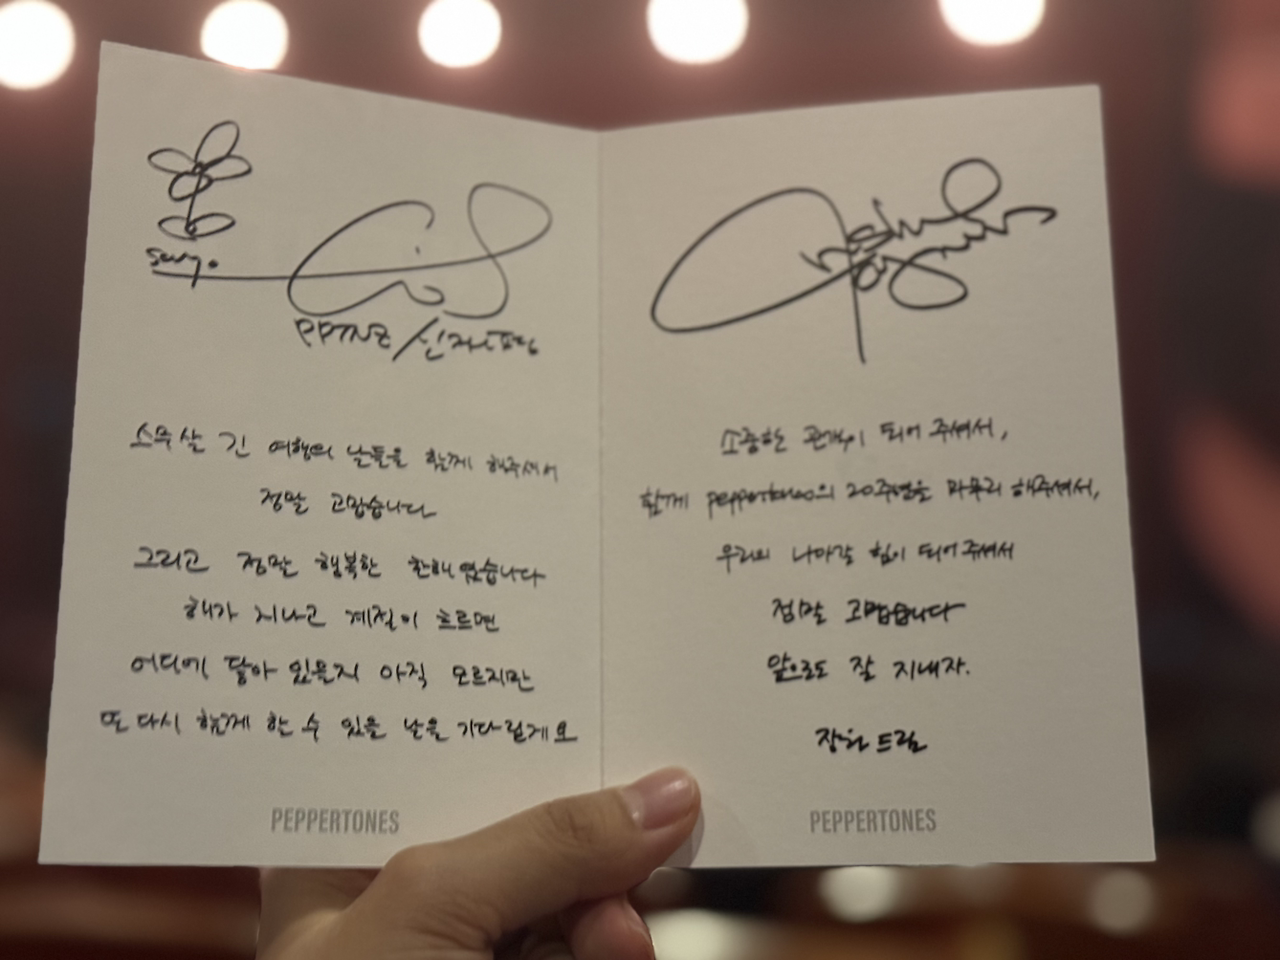 PPTNZ/신재평
스무살 긴 여행의 날들을 함께 해주셔서
정말 고맙습니다
그리고 정말 행복한 한해였습니다
해가 지나고 계절이 흐르면
어디에 닿아 있을지 아직 모르지만
또 다시 함께 한 수 있을 날을 기다릴게요
PEPPERTONES
소중한 관객이 되어 주셔서,
함께 peppertones의 20주년을 마무리 해주셔서,
우리의 나아갈 힘이 되어주셔서
정말 고맙습니다
앞으로도 잘 지내자.
장원 드림
PEPPERTONES